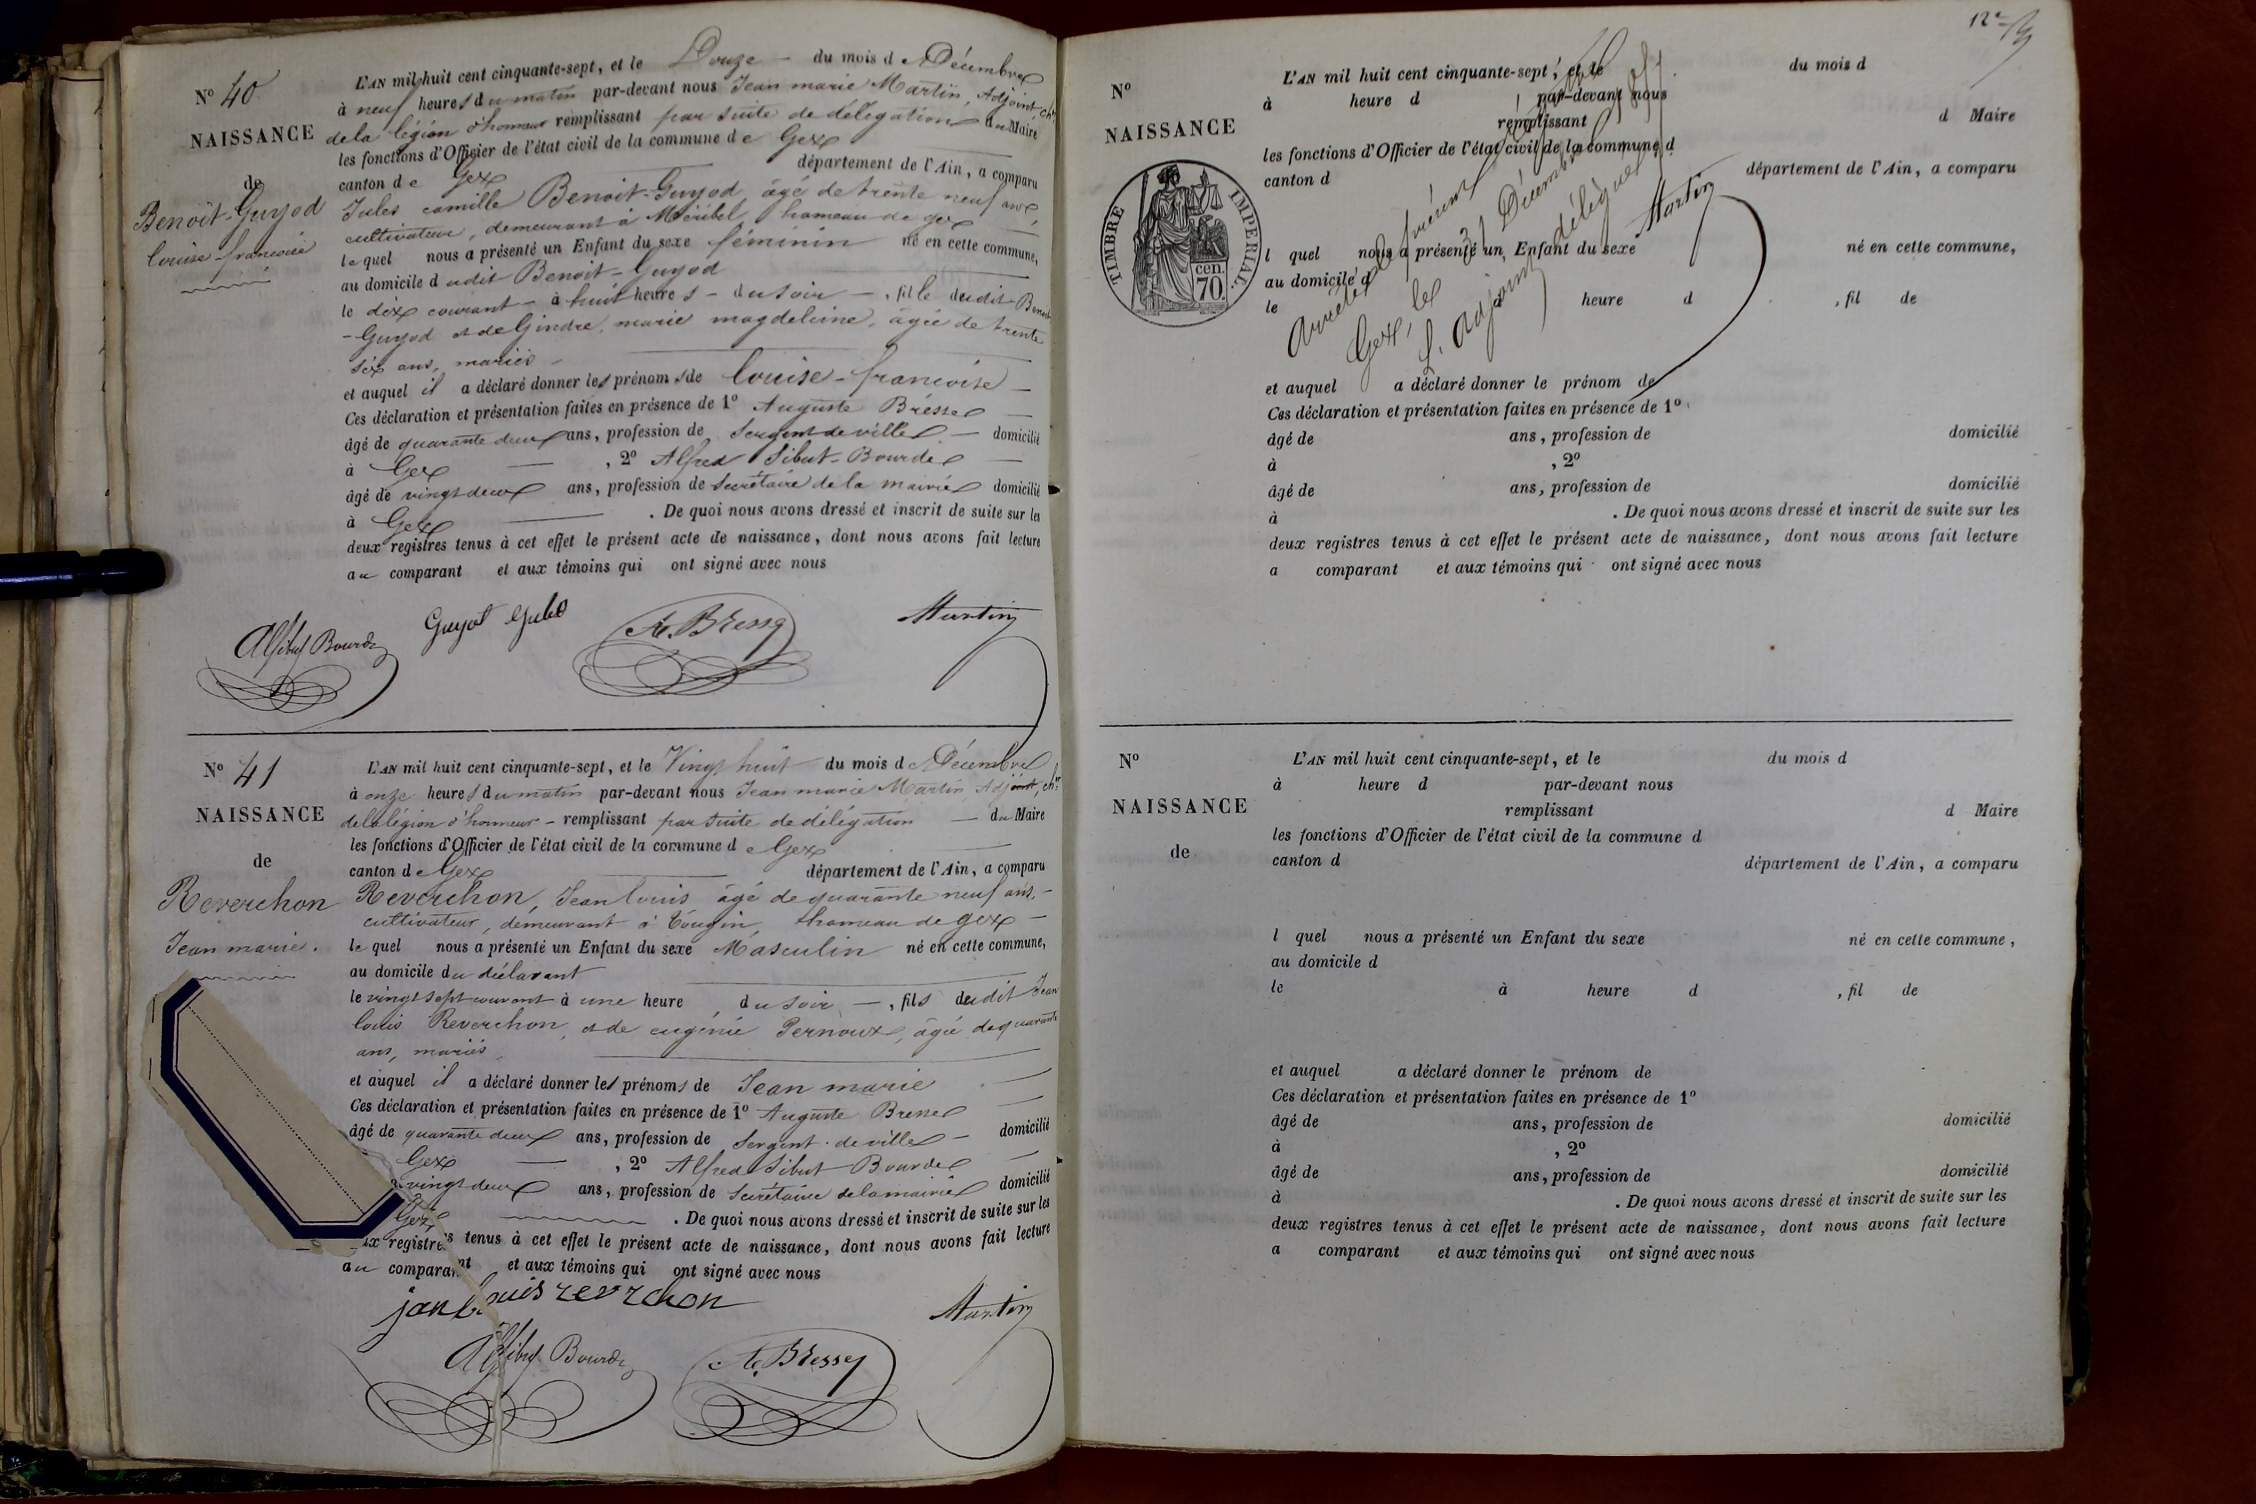 N° 40
NAISSANCE
de
Benoît-Guyod
louise-francoise
L'AN mil huit cent cinquante-sept, et le Douze — du mois de Décembre
à neuf heures du matin par-devant nous Jean marie Martin, Adjoint, chr
de la légion d'honneur remplissant par suite de délégation du Maire
les fonctions d'Officier de l'état civil de la commune de Gex
canton de Gex département de l'Ain, a comparu
Jules camille Benoit-Guyod, âgé de trente neuf ans,
cultivateur, demeurant à Méribel, hameau de gex
lequel nous a présenté un Enfant du sexe féminin né en cette commune,
au domicile dudit Benoit-Guyod
le dix courant — à huit heures — du soir —, fille dudit Benoit
-Guyod et de Gindre, marie magdeleine, âgée de trente
six ans, mariés —
et auquel il a déclaré donner les prénoms de louise-francoise —
Ces déclaration et présentation faites en présence de 1° Auguste Bressel —
âgé de quarante deux ans, profession de Sergent de ville — domicilié
à Gex — , 2° Alfred Sibut-Bourde —
âgé de vingt deux ans, profession de Secrétaire de la mairie domicilié
à Gex . De quoi nous avons dressé et inscrit de suite sur les
deux registres tenus à cet effet le présent acte de naissance, dont nous avons fait lecture
au comparant et aux témoins qui ont signé avec nous
A Sibut Bourde Guyot Jules Ate Bressey Martin
N° 41
NAISSANCE
de
Reverchon
Jean marie.
L'AN mil huit cent cinquante-sept, et le Vingt huit du mois de Décembre
à onze heures du matin par-devant nous Jean marie Martin Adjoint, chr
de la légion d'honneur — remplissant par suite de délégation — du Maire
les fonctions d'Officier de l'état civil de la commune de Gex
canton de Gex département de l'Ain, a comparu
Reverchon, Jean louis âgé de quarante neuf ans, —
cultivateur, demeurant à Tougin, hameau de gex —
lequel nous a présenté un Enfant du sexe Masculin né en cette commune,
au domicile du déclarant
le vingt sept courant à une heure du soir —, fils dudit Jean
louis Reverchon, et de eugénie Pernoux, âgée de quarante
ans, mariés,
et auquel il a déclaré donner les prénoms de Jean marie —
Ces déclaration et présentation faites en présence de 1° Auguste Bressel —
âgé de quarante deux ans, profession de Sergent de ville — domicilié
Gex — , 2° Alfred Sibut Bourde —
vingt deux ans, profession de Secrétaire de la mairie domicilié
Gex . De quoi nous avons dressé et inscrit de suite sur les
ux registres tenus à cet effet le présent acte de naissance, dont nous avons fait lecture
au comparant et aux témoins qui ont signé avec nous
jan louis revrchon Martin
A Sibut Bourde Ate Bressey
12e
N°
NAISSANCE
TIMBRE IMPERIAL.
cen.
70.
L'AN mil huit cent cinquante-sept, et le du mois d
à heure d par-devant nous
remplissant d Maire
les fonctions d'Officier de l'état civil de la commune d
canton d département de l'Ain, a comparu
l quel nous a présenté un Enfant du sexe né en cette commune,
au domicile d
le à heure d , fil de
Gex, le 31 Décembre
L'adjoint délégué
Martin
et auquel a déclaré donner le prénom de
Ces déclaration et présentation faites en présence de 1°
âgé de ans, profession de domicilié
à , 2°
âgé de ans, profession de domicilié
à . De quoi nous avons dressé et inscrit de suite sur les
deux registres tenus à cet effet le présent acte de naissance, dont nous avons fait lecture
a comparant et aux témoins qui ont signé avec nous
N°
NAISSANCE
de
L'AN mil huit cent cinquante-sept, et le du mois d
à heure d par-devant nous
remplissant d Maire
les fonctions d'Officier de l'état civil de la commune d
canton d département de l'Ain, a comparu
l quel nous a présenté un Enfant du sexe né en cette commune,
au domicile d
le à heure d , fil de
et auquel a déclaré donner le prénom de
Ces déclaration et présentation faites en présence de 1°
âgé de ans, profession de domicilié
à , 2°
âgé de ans, profession de domicilié
à . De quoi nous avons dressé et inscrit de suite sur les
deux registres tenus à cet effet le présent acte de naissance, dont nous avons fait lecture
a comparant et aux témoins qui ont signé avec nous